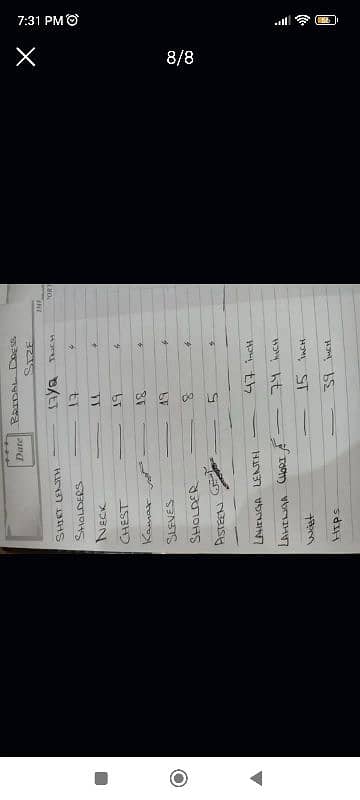 7:31 PM
8/8
Date
BRIDAL DRESS
SIZE
SHIRT LENTH — 17 INCH
SHOLDERS — 17 "
NECK — 11 "
CHEST — 19 "
Kamar — 18 "
SLEVES — 19 "
SHOLDER — 8 "
ASTEEN — 5 "
LAHENGA LENTH — 47 INCH
LAHENGA — 74 INCH
— 15 INCH
HIPS — 39 INCH